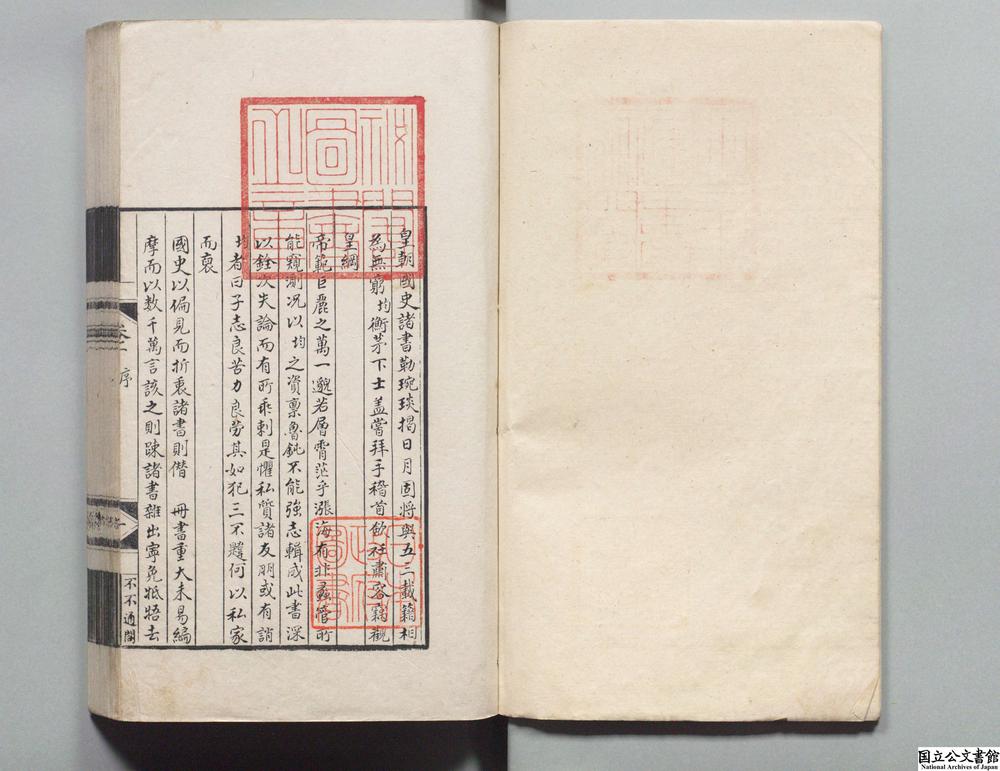 皇朝國史諸書勒琬琰揭日月固將與五三載籍相
為無窮 均衡茅下士盖嘗拜手稽首斂衽肅容竊觀
皇綱
帝範巨麗之萬一邈若層霄茫乎漲海有非蠡管所
能窺測况以均之資禀魯鈍不能強志輯成此書深
以銓次失論而有所乖剌是懼私質諸友朋或有誚
均者曰子志良苦力良勞其如犯三不韙何以私家
而裒
國史以偏見而折衷諸書則僭 冊書重大未易編
摩而以数千萬言該之則踈諸書雜出寧免牴牾去
序
秘閣圖書之章
国立公文書館
National Archives of Japan